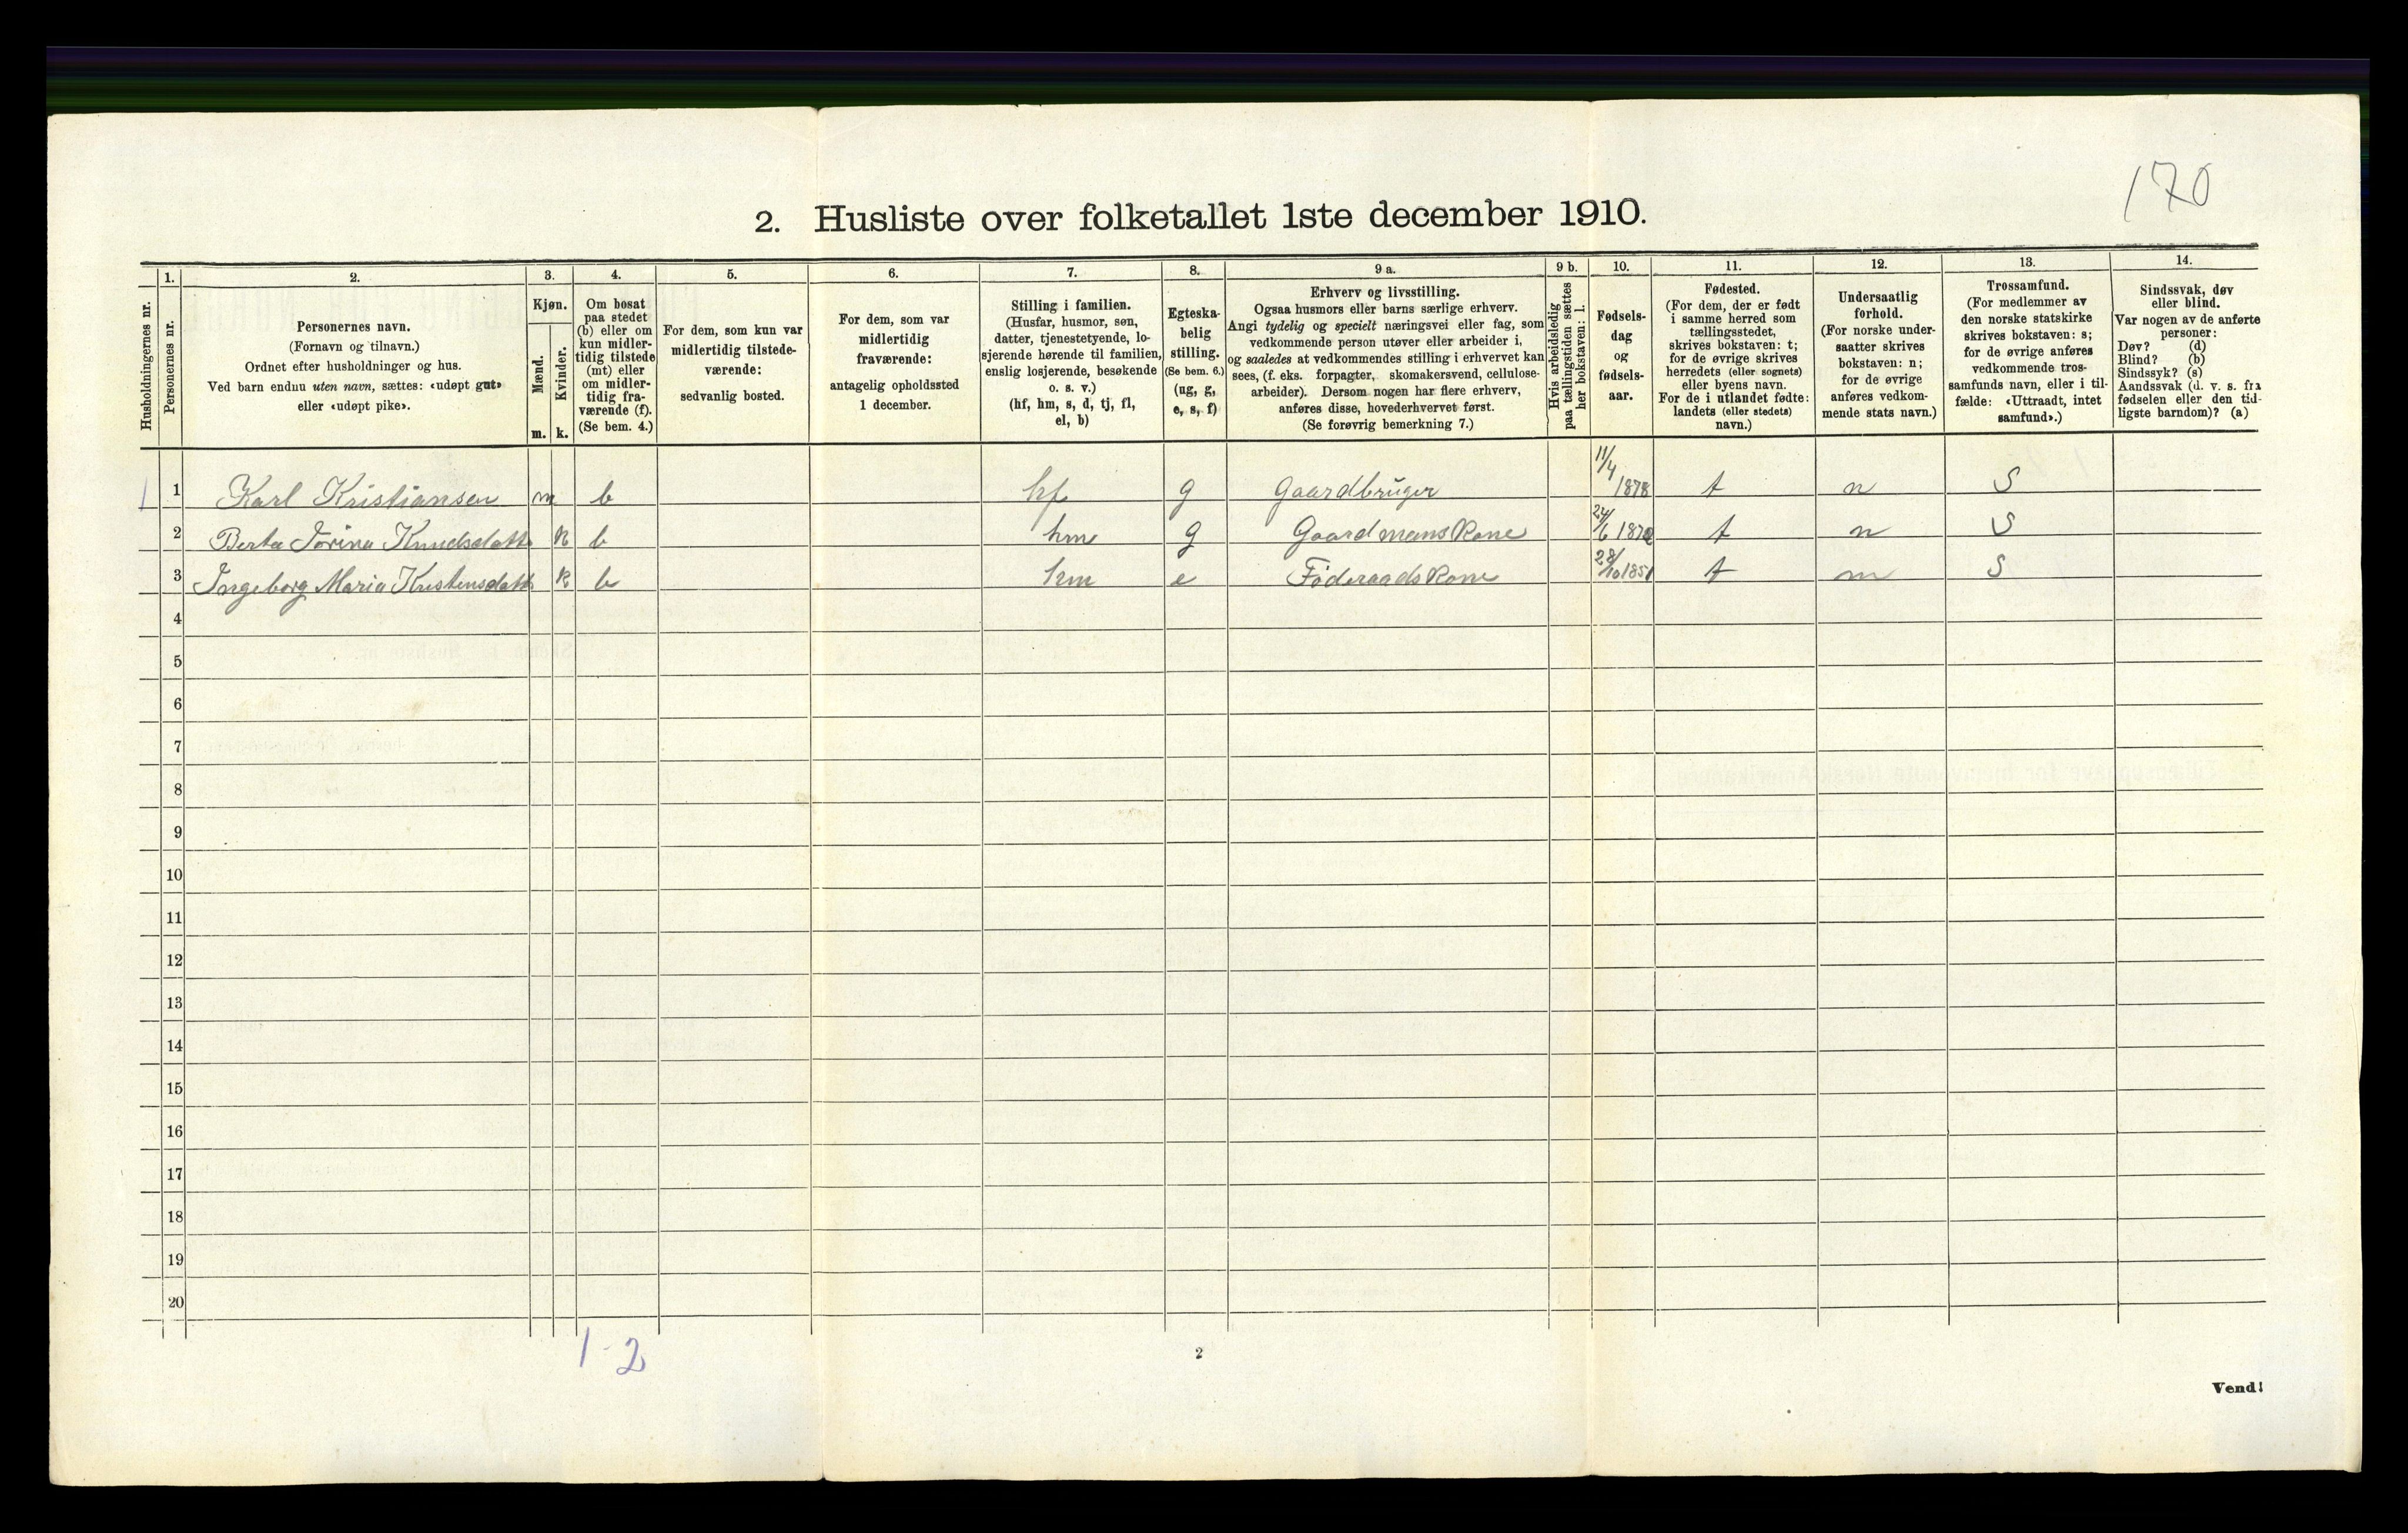 170
2. Husliste over folketallet 1ste december 1910.
Husholdningernes nr.
1.
Personernes nr.
2.
Personernes navn.
(Fornavn og tilnavn.)
Ordnet efter husholdninger og hus.
Ved barn endnu uten navn, sættes: «udøpt gut»
eller «udøpt pike».
3.
Kjøn.
Mænd.
Kvinder.
m. k.
4.
Om bosat
paa stedet
(b) eller om
kun midler-
tidig tilstede
(mt) eller
om midler-
tidig fra-
værende (f).
(Se bem. 4.)
5.
For dem, som kun var
midlertidig tilstede-
værende:
sedvanlig bosted.
6.
For dem, som var
midlertidig
fraværende:
antagelig opholdssted
1 december.
7.
Stilling i familien.
(Husfar, husmor, søn,
datter, tjenestetyende, lo-
sjerende hørende til familien,
enslig losjerende, besøkende
o. s. v.)
(hf, hm, s, d, tj, fl,
el, b)
8.
Egteska-
belig
stilling.
(Se bem. 6.)
(ug, g,
e, s, f)
9 a.
Erhverv og livsstilling.
Ogsaa husmors eller barns særlige erhverv.
Angi tydelig og specielt næringsvei eller fag, som
vedkommende person utøver eller arbeider i,
og saaledes at vedkommendes stilling i erhvervet kan
sees, (f. eks. forpagter, skomakersvend, cellulose-
arbeider). Dersom nogen har flere erhverv,
anføres disse, hovederhvervet først.
(Se forøvrig bemerkning 7.)
9 b.
Hvis arbeidsledig
paa tællingstiden sættes
her bokstaven: l.
10.
Fødsels-
dag
og
fødsels-
aar.
11.
Fødested.
(For dem, der er født
i samme herred som
tællingsstedet,
skrives bokstaven: t;
for de øvrige skrives
herredets (eller sognets)
eller byens navn.
For de i utlandet fødte:
landets (eller stedets)
navn.)
12.
Undersaatlig
forhold.
(For norske under-
saatter skrives
bokstaven: n;
for de øvrige
anføres vedkom-
mende stats navn.)
13.
Trossamfund.
(For medlemmer av
den norske statskirke
skrives bokstaven: s;
for de øvrige anføres
vedkommende tros-
samfunds navn, eller i til-
fælde: «Uttraadt, intet
samfund».)
14.
Sindssvak, døv
eller blind.
Var nogen av de anførte
personer:
Døv? (d)
Blind? (b)
Sindssyk? (s)
Aandssvak (d. v. s. fra
fødselen eller den tid-
ligste barndom)? (a)
1 1 Karl Kristiansen m b hf g Gaardbruger 11/4 1878 t n S
2 Berta Jorina Knudsdatt k b hm g Gaardmanskone 24/6 t n S
3 Ingeborg Maria Kristensdatt k b hm e Føderaadskone 28/10 1851 t n S
4
5
6
7
8
9
10
11
12
13
14
15
16
17
18
19
20
1-2
2
Vend!